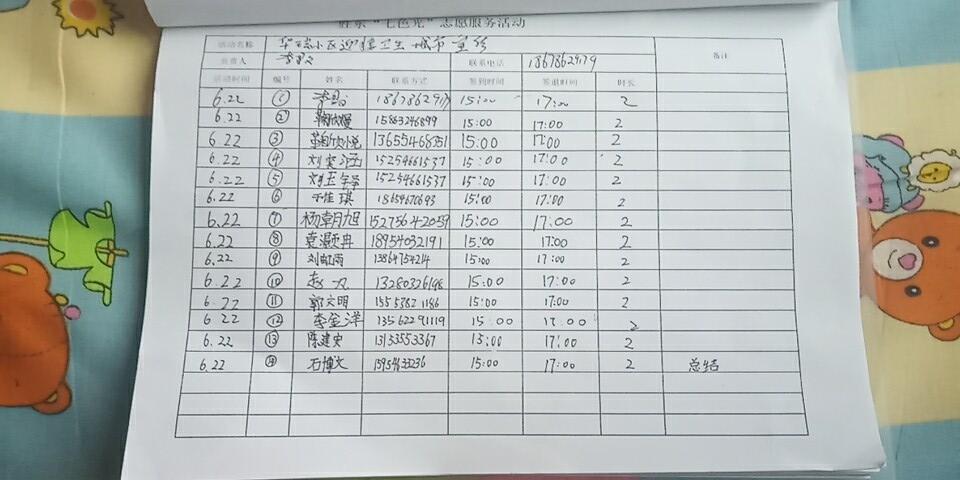 胜东“七色光”志愿服务活动
活动名称 华瑞小区迎接卫生城市宣传 备注
负责人 联系电话 18678629179
活动时间 编号 姓名 联系方式 签到时间 签退时间 时长
6.22 ① 15:00 17:00 2
6.22 ② 15863246899 15:00 17:00 2
6.22 ③ 13655468351 15:00 17:00 2
6.22 ④ 刘奕涵 15254661537 15:00 17:00 2
6.22 ⑤ 刘玉铎 15254661537 15:00 17:00 2
6.22 ⑥ 于佳琪 18654670693 15:00 17:00 2
6.22 ⑦ 杨朝旭 15275642059 15:00 17:00 2
6.22 ⑧ 袁灏冉 18954032191 15:00 17:00 2
6.22 ⑨ 刘虹雨 13864754214 15:00 17:00 2
6.22 ⑩ 赵凡 15:00 17:00 2
6.22 ⑪ 郭文明 15553821186 15:00 17:00 2
6.22 ⑫ 李金洋 13562291119 15:00 17:00 2
6.22 ⑬ 陈建安 13153553367 15:00 17:00 2
6.22 ⑭ 石博文 15954633236 15:00 17:00 2 总结